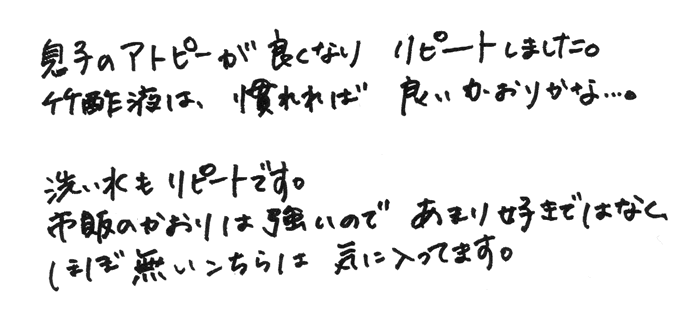 息子のアトピーが良くなり リピートしました。
竹酢液は、慣れれば 良いかおりかな…。
洗い水もリピートです。
市販のかおりは強いので あまり好きではなく、
ほぼ無いこちらは 気に入ってます。